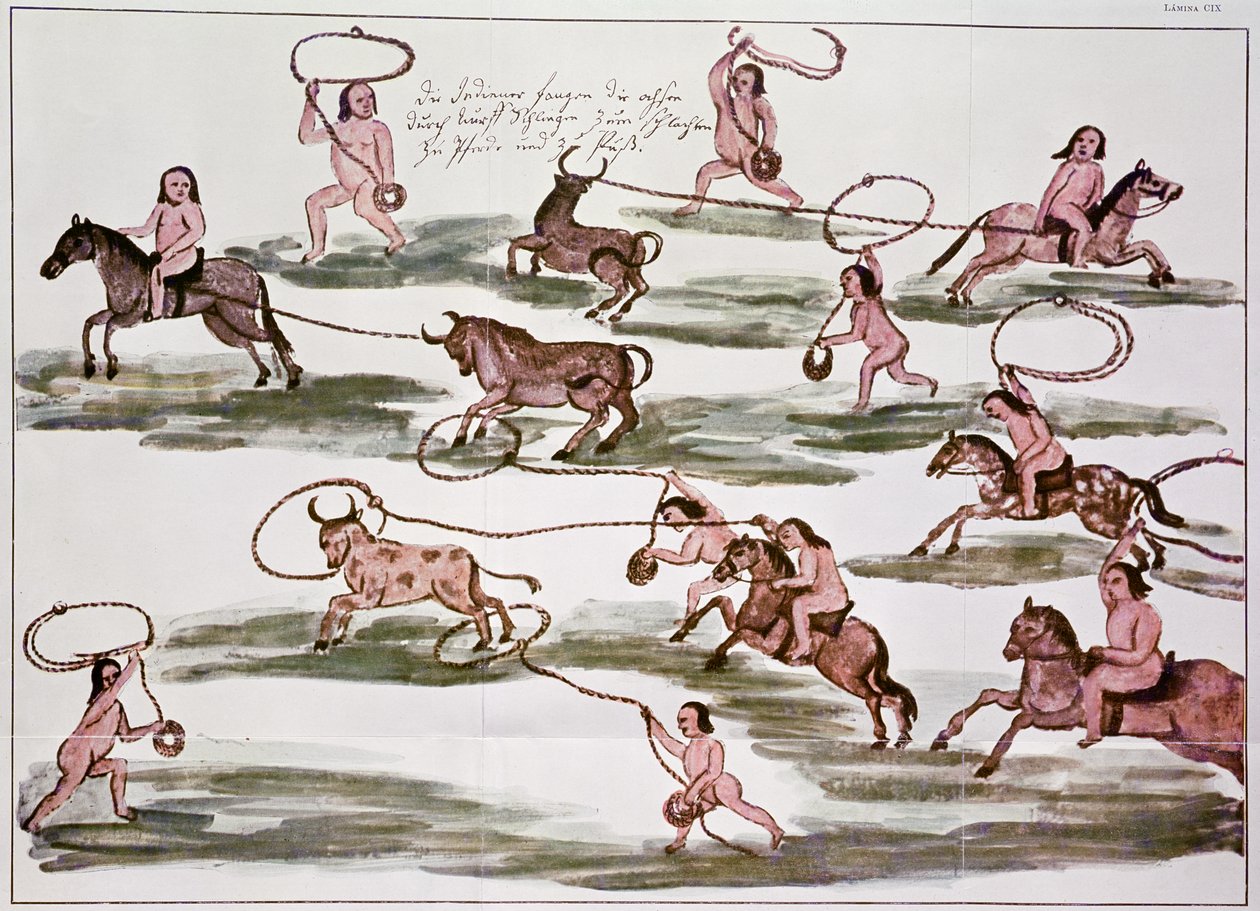 LÁMINA CIX
Die Indianer fangen die ochsen
durch Wurff Schlingen zum schlachten
zu Pferde und zu Fuß.